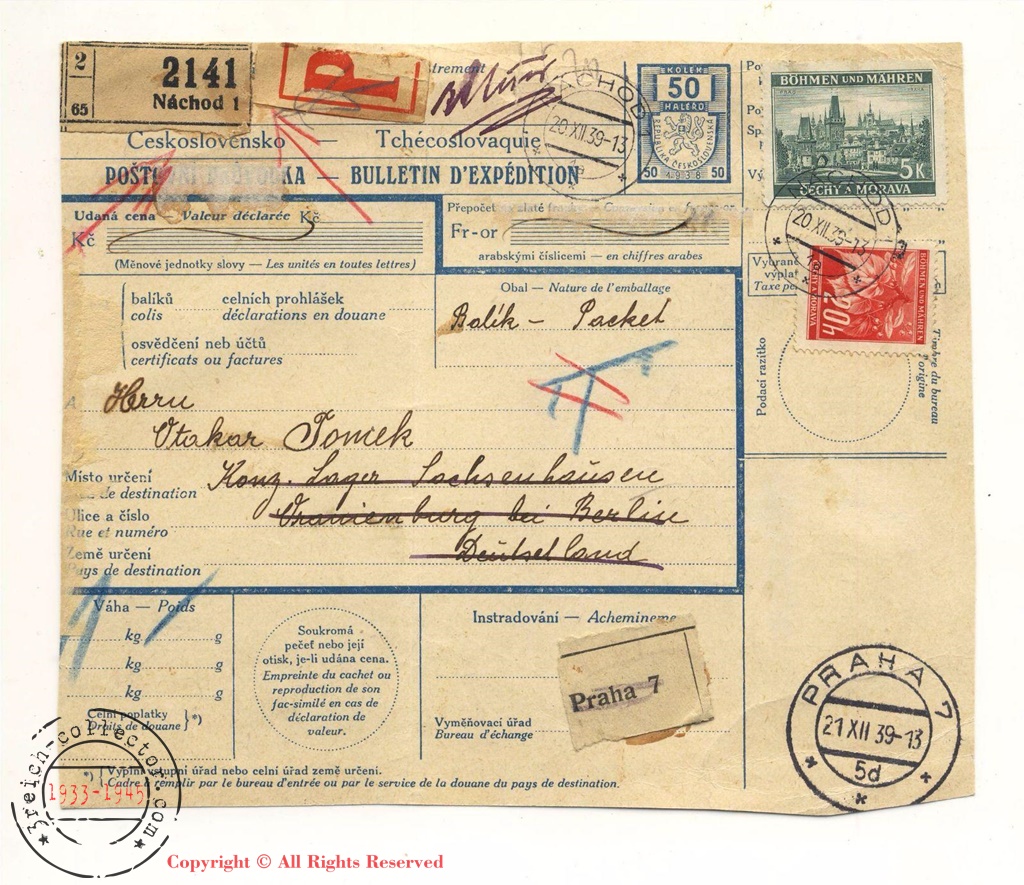 2
65
2141
Náchod 1
P
KOLEK
50
HALÉŘŮ
REPUBLIKA ČESKOSLOVENSKÁ
50 1938 50
NÁCHOD 1
20.XII.39-13
BÖHMEN UND MÄHREN
5K
ČECHY A MORAVA
Československo — Tchécoslovaquie
— BULLETIN D'EXPÉDITION
Udaná cena — Valeur déclarée Kč
Kč
(Měnové jednotky slovy — Les unités en toutes lettres)
Fr-or
arabskými číslicemi — en chiffres arabes
20.XII.39-13
BÖHMEN UND MÄHREN
ČECHY A MORAVA
40h
balíků
colis
celních prohlášek
déclarations en douane
osvědčení neb účtů
certificats ou factures
Obal — Nature de l'emballage
Balík - Packet
Podací razítko
Timbre du bureau d'origine
A
Herrn
Otakar Tomek
Místo určení
de destination
Konz. Lager Sachsenhausen
Ulice a číslo
Rue et numéro
Oranienburg bei Berlin
Země určení
Pays de destination
Deutschland
Váha — Poids
kg g
kg g
kg g
Celní poplatky
Droits de douane *)
Soukromá
pečeť nebo její
otisk, je-li udána cena.
Empreinte du cachet ou
reproduction de son
fac-similé en cas de
déclaration de
valeur.
Instradování — Achemineme
Praha 7
Vyměňovací úřad
Bureau d'échange
PRAHA 7
21.XII.39-13
5d
*) Vyplní vstupní úřad nebo celní úřad země určení.
Cadre à remplir par le bureau d'entrée ou par le service de la douane du pays de destination.
3reich-collector.com
1933-1945
Copyright © All Rights Reserved